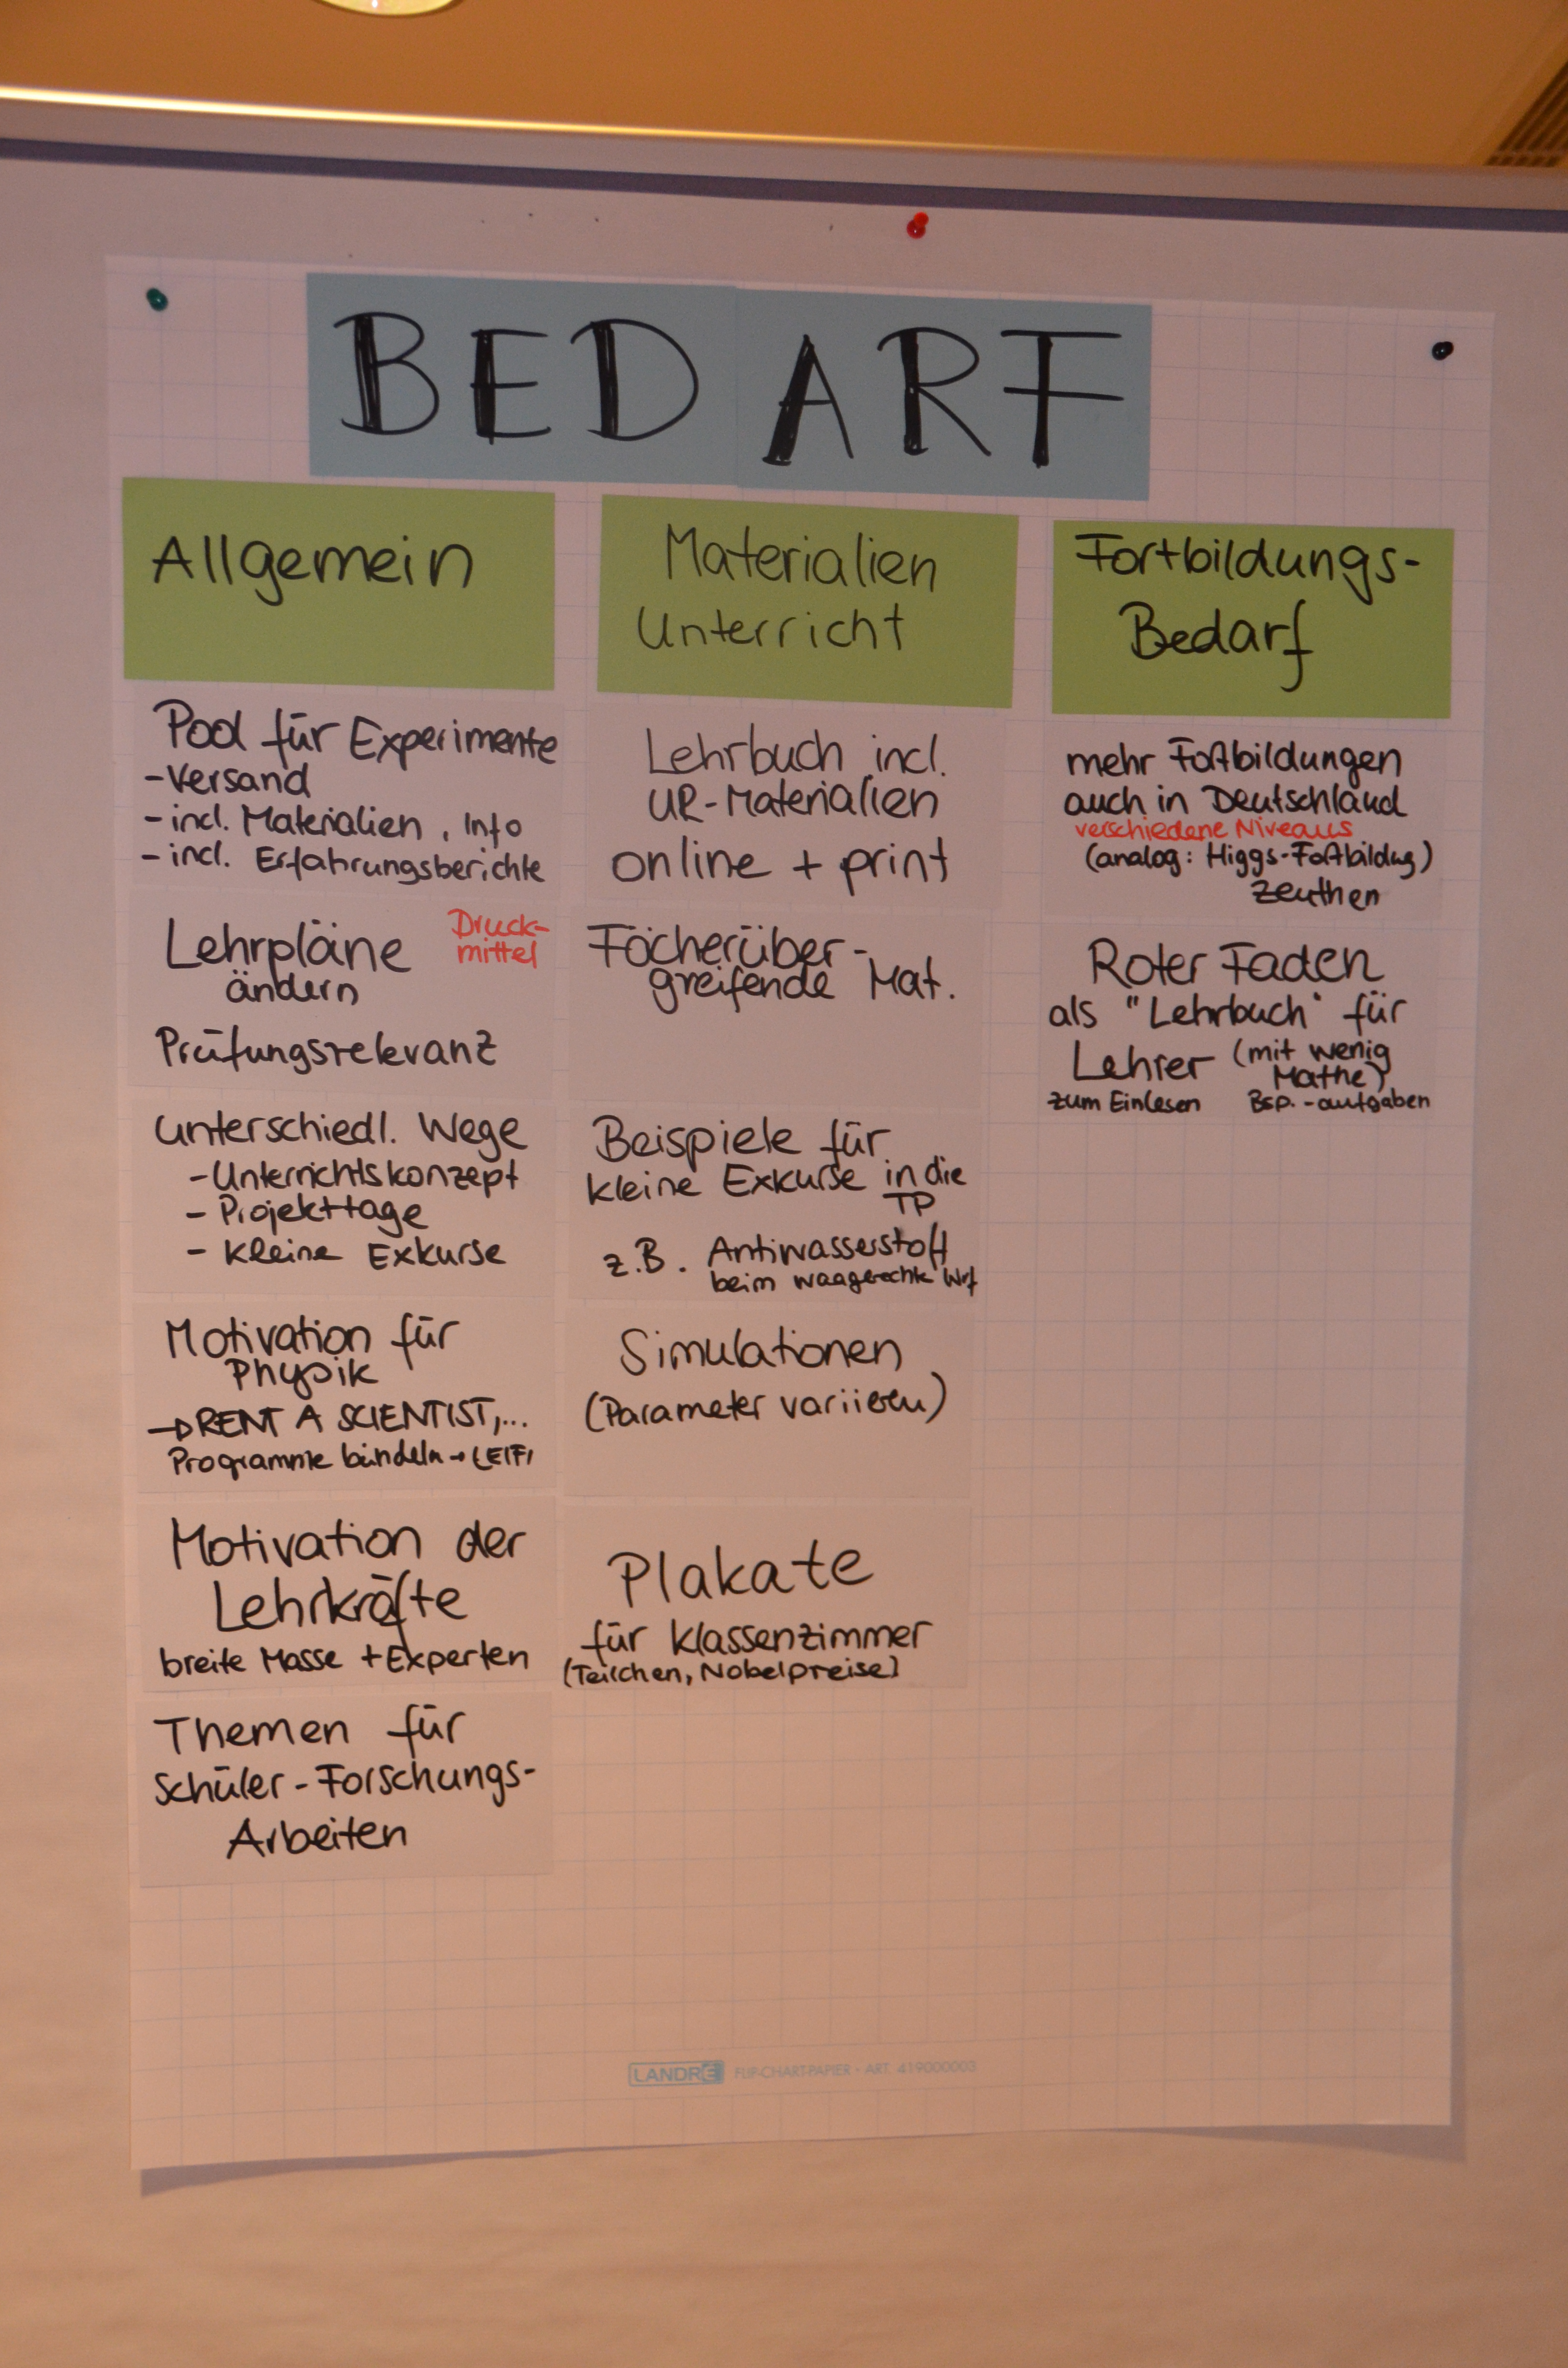 BEDARF
Allgemein
Pool für Experimente
- Versand
- incl. Materialien, Info
- incl. Erfahrungsberichte
Lehrpläne
ändern
Druck-
mittel
Prüfungsrelevanz
Unterschiedl. Wege
- Unterrichtskonzept
- Projekttage
- Kleine Exkurse
Motivation für
Physik
→ RENT A SCIENTIST,...
Programme bündeln → LEIFI
Motivation der
Lehrkräfte
breite Masse + Experten
Themen für
Schüler-Forschungs-
Arbeiten
Materialien
Unterricht
Lehrbuch incl.
UR-Materialien
online + print
Fächerüber-
greifende Mat.
Beispiele für
kleine Exkurse in die
TP
z.B. Antiwasserstoff
beim waagerechte Wurf
Simulationen
(Parameter variieren)
Plakate
für Klassenzimmer
(Teilchen, Nobelpreise)
Fortbildungs-
Bedarf
mehr Fortbildungen
auch in Deutschland
verschiedene Niveaus
(analog: Higgs-Fortbildung)
Zeuthen
Roter Faden
als "Lehrbuch" für
Lehrer (mit wenig
Mathe)
zum Einlesen Bsp.-aufgaben
LANDRÉ FLIP-CHART-PAPIER - ART. 419000003